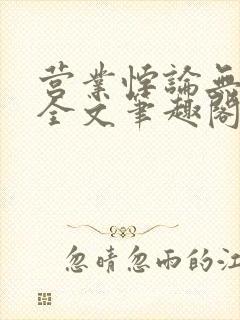 营业悖論無
全文筆趣閣
忽晴忽雨的江